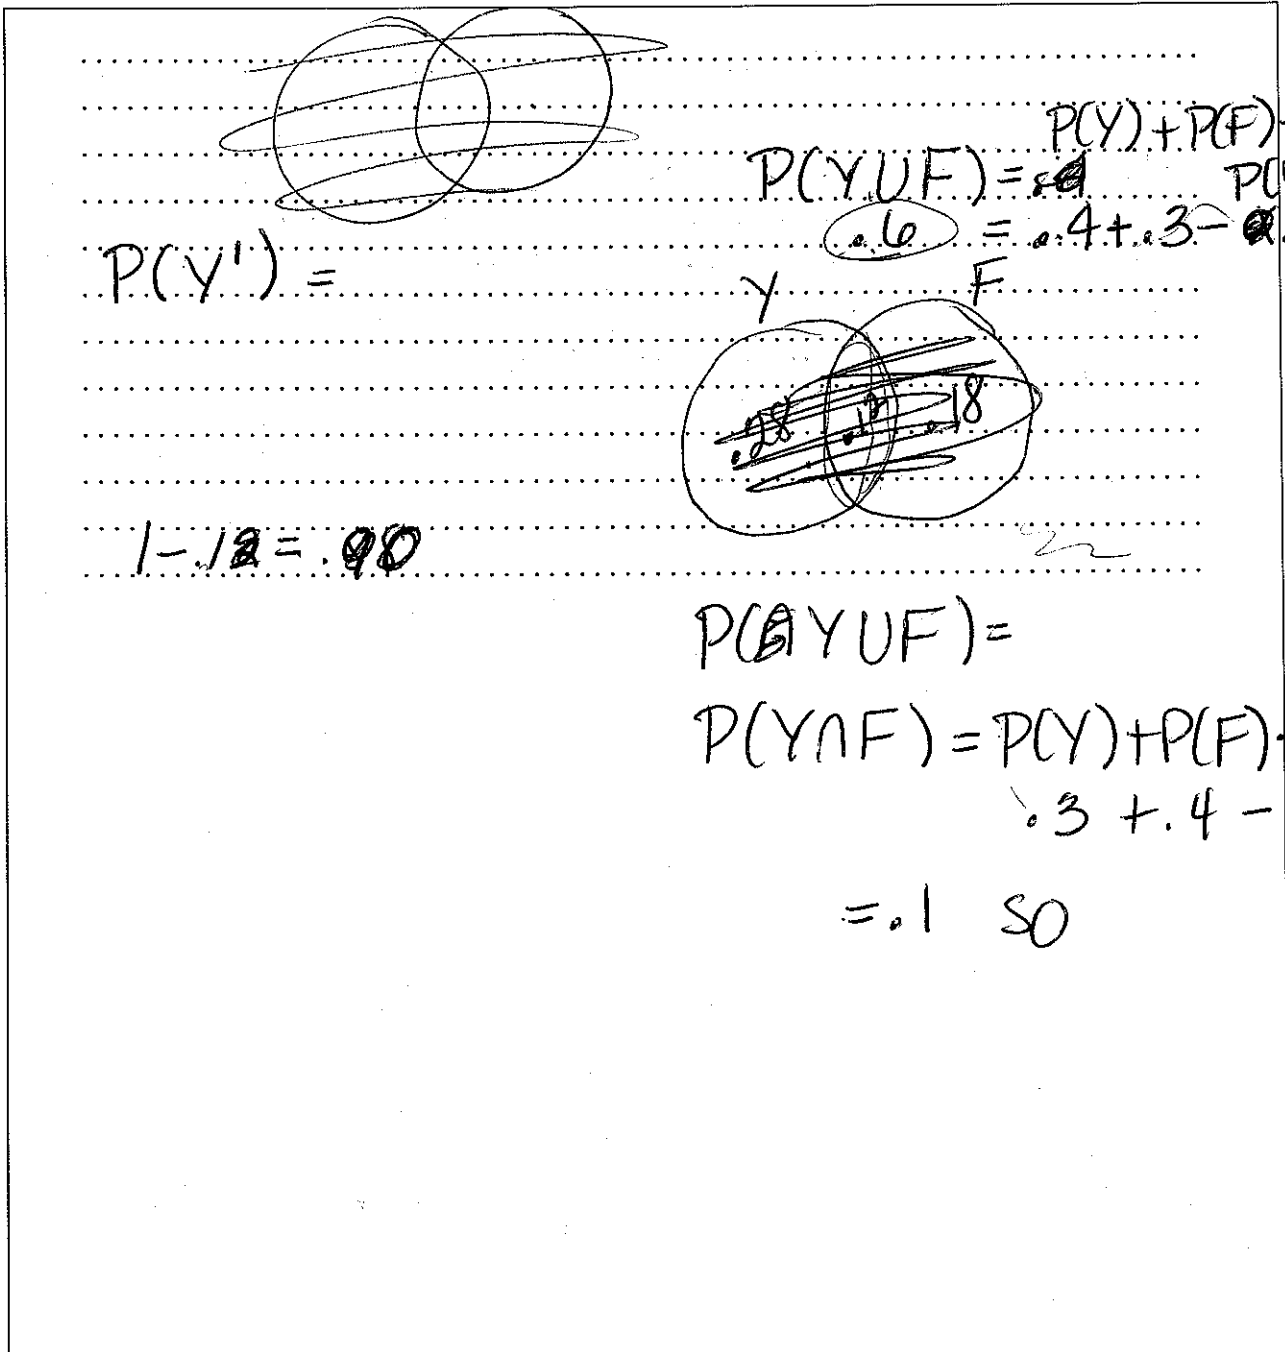 P(Y) + P(F)
P(Y∪F) =
.6 = .4 + .3 -
P(Y') =
Y F
.28 .12 .18
1 - .1 = .90
P( Y∪F) =
P(Y∩F) = P(Y) + P(F)
.3 + .4 -
= .1 so